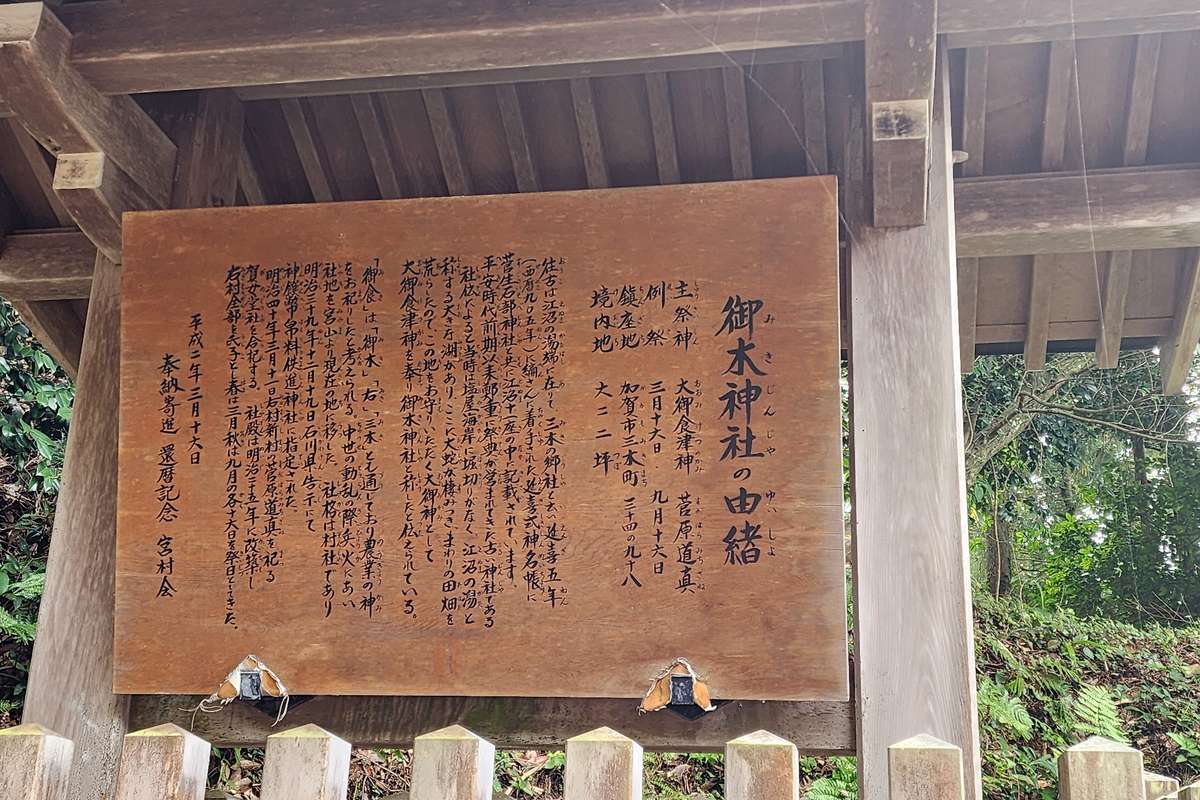 御木神社の由緒
主祭神 大御食津神 菅原道真
例祭 三月十六日 九月十六日
鎮座地 加賀市三木町三ノ四の九十八
境内地 大二二坪
往古は江沼の潟端に在りて、三木の郷社と云い、延喜五年
(西暦九〇五年)に編さんに着手された延喜式神名帳に
菅生石部神社と共に江沼十一座の中に記載されています。
平安時代前期以来鄭重に祭典が営まれてきた古い神社である
社伝によると当時は塩屋海岸に堀切りがなく、江沼の潟と
称する大きな湖があり、ここに大蛇が棲みつき、まわりの田畑を
荒らしたので、この地をお守りいただく大御神として
大御食津神を奉り御木神社と称したと伝えられている。
「御食」は「御木」「右」「三木」とも通じており農業の神
をお祀りしたと考えられる。中世の動乱の際、兵火にあい
社地を宮山より現在の地へ移した。 社格は村社であり
明治三十九年十二月二十九日石川県告示にて
神饌幣帛料供進神社に指定された。
明治四十年三月十一日右村新村の菅原道真を祀る
賀女金社を合祀する。 社殿は明治三十五年に改築し
右村全部を氏子とし春は三月秋は九月の各十六日を祭日としてきた。
平成二年三月十六日
奉納寄進 還暦記念 宮村会